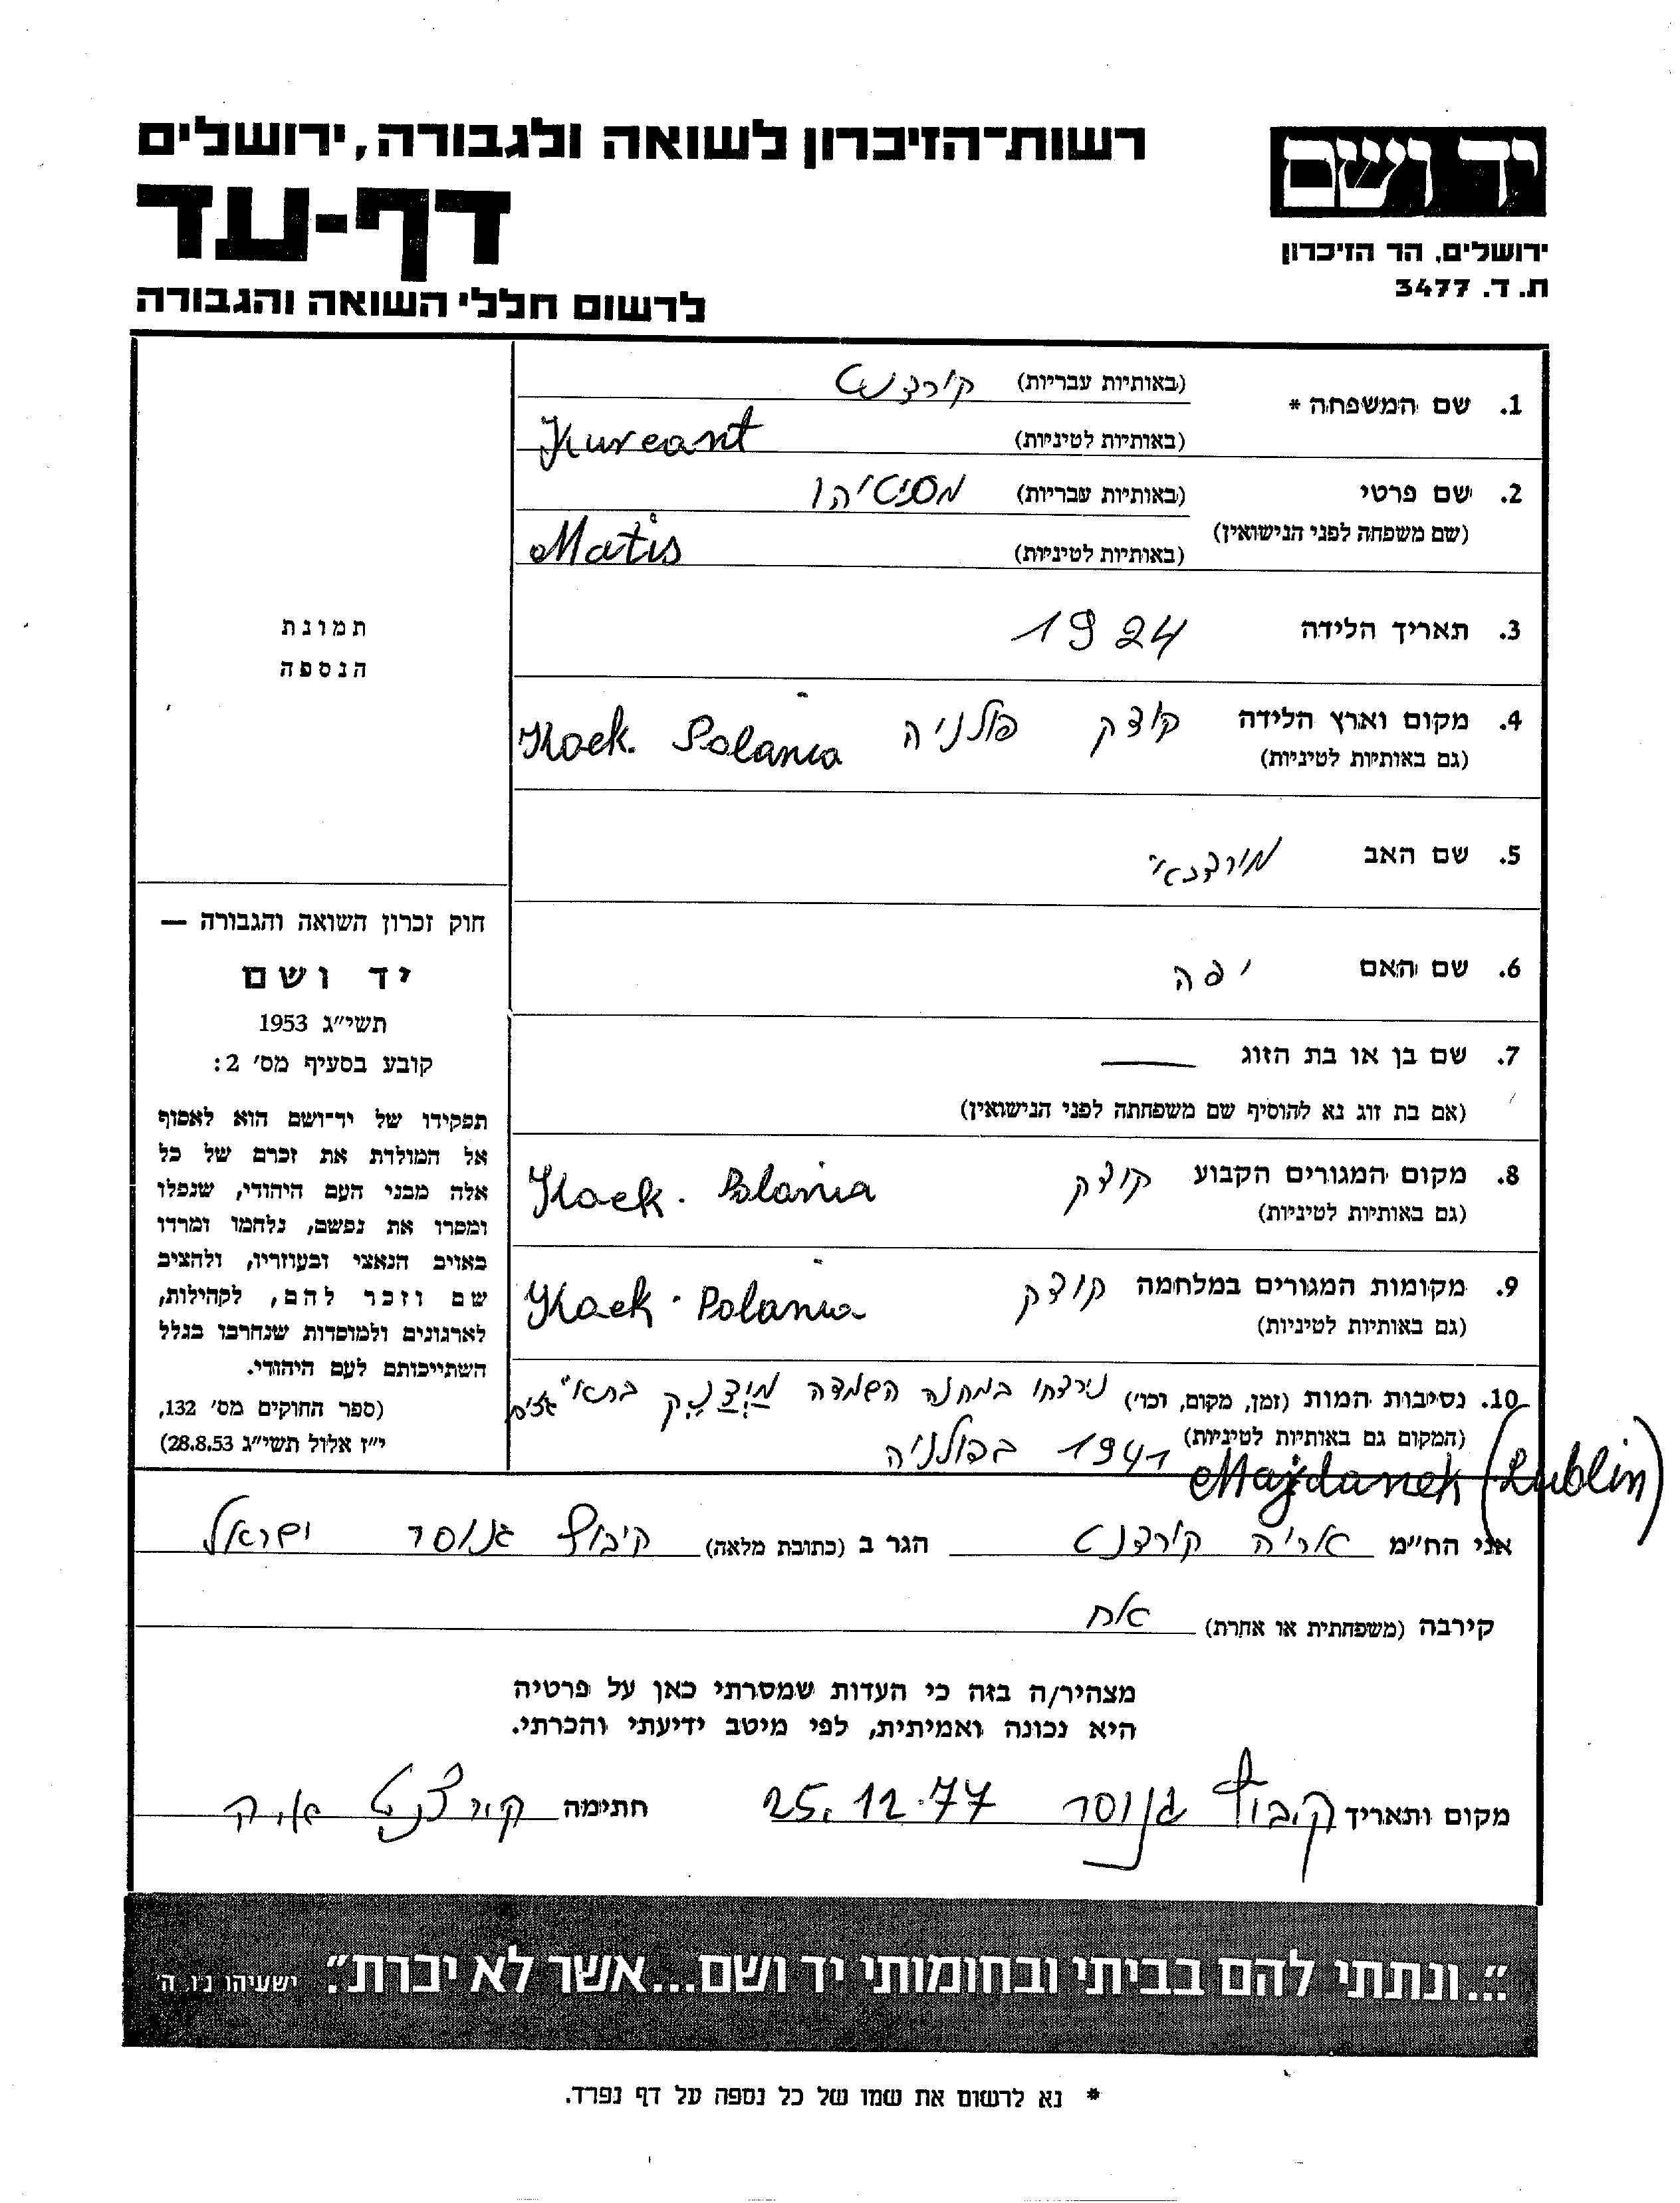 רשות־הזיכרון לשואה ולגבורה, ירושלים
דף-עד
לרשום חללי השואה והגבורה
יד ושם
ירושלים, הר הזיכרון
ת. ד. 3477
1. שם המשפחה *
(באותיות עבריות) קורצנט
(באותיות לטיניות) Kurcant
2. שם פרטי
(שם משפחה לפני הנישואין)
(באותיות עבריות)
(באותיות לטיניות) Matis
3. תאריך הלידה 1924
4. מקום וארץ הלידה קוצק פולניה Kock. Polania
(גם באותיות לטיניות)
5. שם האב מורדכאי
6. שם האם יפה
7. שם בן או בת הזוג
(אם בת זוג נא להוסיף שם משפחתה לפני הנישואין)
8. מקום המגורים הקבוע קוצק Kock. Polania
(גם באותיות לטיניות)
9. מקומות המגורים במלחמה קוצק Kock. Polania
(גם באותיות לטיניות)
10. נסיבות המות (זמן, מקום, וכו') נירצחו במחנה השמדה מידנק בתא"
(המקום גם באותיות לטיניות) 1941 בפולניה
Majdanek (Lublin)
תמונת
הנספה
חוק זכרון השואה והגבורה —
יד ושם
תשי"ג 1953
קובע בסעיף מס' 2:
תפקידו של יד־ושם הוא לאסוף
אל המולדת את זכרם של כל
אלה מבני העם היהודי, שנפלו
ומסרו את נפשם, נלחמו ומרדו
באויב הנאצי ובעוזריו, ולהציב
שם וזכר להם, לקהילות,
לארגונים ולמוסדות שנחרבו בגלל
השתייכותם לעם היהודי.
(ספר החוקים מס' 132,
י"ז אלול תשי"ג 28.8.53)
אני הח"מ אריה קורצנט הגר ב (כתובת מלאה) קיבוץ גנוסר ישראל
קירבה (משפחתית או אחרת) אח
מצהיר/ה בזה כי העדות שמסרתי כאן על פרטיה
היא נכונה ואמיתית, לפי מיטב ידיעתי והכרתי.
מקום ותאריך קיבוץ גנוסר 25.12.77 חתימה קורצנט אריה
"...ונתתי להם בביתי ובחומותי יד ושם...אשר לא יכרת". ישעיהו נ״ו ה׳
* נא לרשום את שמו של כל נספה על דף נפרד.